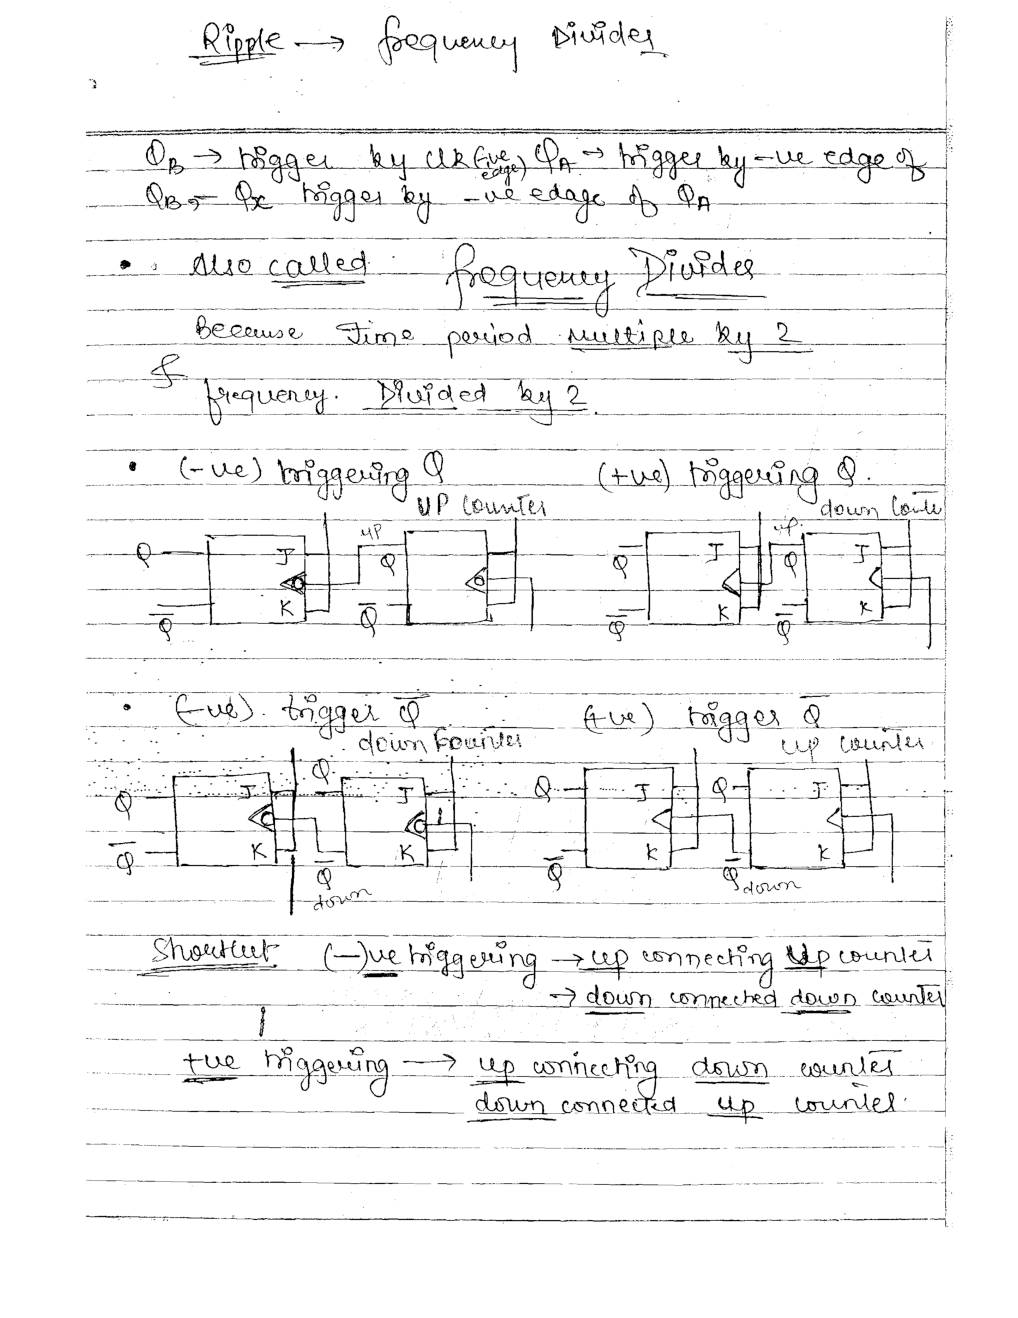 Ripple → frequency Divider
Q_B → trigger by clk (-ve edge) Q_A → trigger by -ve edge of
Q_B → Q_x trigger by -ve edage of Q_A
• Also called frequency Divider
Because Time period multiple by 2
& frequency. Divided by 2.
• (-ve) triggering Q (+ve) triggering Q.
UP Counter down Counter
up up
Q J Q Q J Q J
Q̅ K Q̅ Q̅ K Q̅ K
• (-ve). trigger Q̅ (+ve) trigger Q̅
down counter up counter
Q J Q J Q J Q J
Q̅ K Q̅ K Q̅ K Q̅ K
down down
Shortcut (-)ve triggering → up connecting Up counter
→ down connected down counter
+ve triggering → up connecting down counter
down connected up counter.